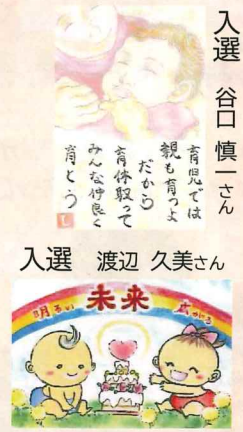 入選
谷口 慎一さん
育児では
親も育つよ
だから
育休取って
みんな仲良く
育とう
入選 渡辺 久美さん
明るい 未来 広がる